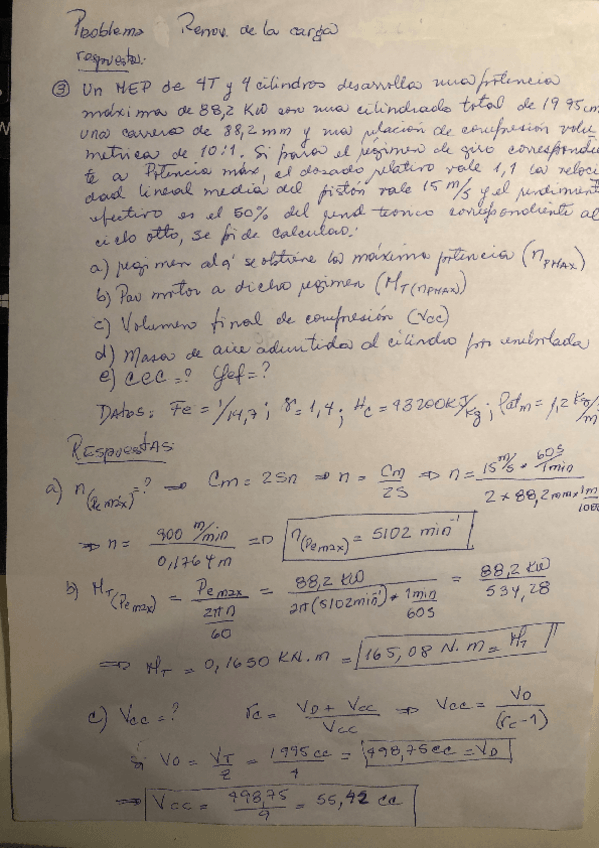 Problema Renov. de la carga
respuesta:
③ Un MEP de 4T y 4 cilindros desarrolla una potencia
máxima de 88,2 KW con una cilindrada total de 1995 cm
una carrera de 88,2 mm y una relación de compresión volu
metrica de 10:1. Si para el régimen de giro correspondie
te a Potencia máx, el dosado relativo vale 1,1 la veloci
dad lineal media del pistón vale 15 m/s y el rendimient
efectivo es el 50% del rend teorico correspondiente al
ciclo otto, se pide calcular:
a) regimen al q' se obtiene la máxima potencia (nPMAX)
b) Par motor a dicho regimen (MT(nPMAX))
c) Volumen final de compresión (Vcc)
d) Masa de aire admitida al cilindro por embolada
e) CEC=? Gef=?
Datos: Fe = 1/14,7 ; γ=1,4 ; Hc = 43200 KJ/Kg ; ρatm = 1,2 Kg/m
Respuestas
a) n(Pe máx)=? ⇒ Cm = 2Sn ⇒ n = Cm/2S ⇒ n = 15 m/s * 60s/1min / 2 x 88,2 mm x 1m/1000
⇒ n = 900 m/min / 0,1764 m ⇒ n(Pe max) = 5102 min⁻¹
b) MT(Pe max) = Pe max / (2πn/60) = 88,2 KW / 2π(5102 min⁻¹) * 1min/60s = 88,2 KW / 534,28
⇒ MT = 0,1650 KN.m = 165,08 N.m = MT
c) Vcc = ? rc = VD + Vcc / Vcc ⇒ Vcc = VD / (rc - 1)
si VD = VT/z = 1995 cc / 4 = 498,75 cc = VD
⇒ Vcc = 498,75 / 9 = 55,42 cc